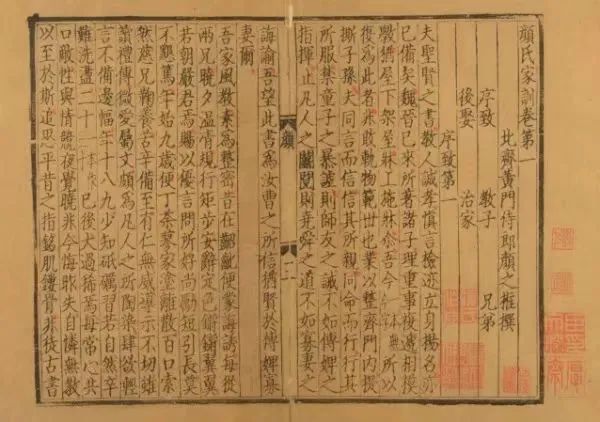 顏氏家訓卷第一
北齊黃門侍郎顏之推撰
序致　教子　兄弟
後娶　治家
序致第一
夫聖賢之書教人誠孝慎言檢迹立身揚名亦
已備矣魏晉已來所著諸子理重事複遞相模
斆猶屋下架屋牀上施牀尒吾今所以
復爲此者非敢軌物範世也業以整齊門內提
撕子孫夫同言而信信其所親同命而行行其
所服禁童子之暴謔則師友之誡不如傅婢之
指揮止凡人之鬬鬩則堯舜之道不如寡妻之
顏
誨諭吾望此書爲汝曹之所信猶賢於傅婢寡
妻爾
吾家風教素爲整密昔在齠齔便蒙誨誘每從
兩兄曉夕溫凊規行矩步安辭定色鏘鏘翼翼
若朝嚴君焉賜以優言問所好尚勵短引長莫
不懇篤年始九歲便丁荼蓼家塗離散百口索
然慈兄鞠養苦辛備至有仁無威導示不切雖
讀禮傳微愛屬文頗爲凡人之所陶染肆欲輕
言不備邊幅年十八九少知砥礪習若自然卒
難洗盪二十已後大過稀焉每常心共
口敵性與情競夜覺曉非今悔昨失自憐無教
以至於斯追思平昔之指銘肌鏤骨非徒古書